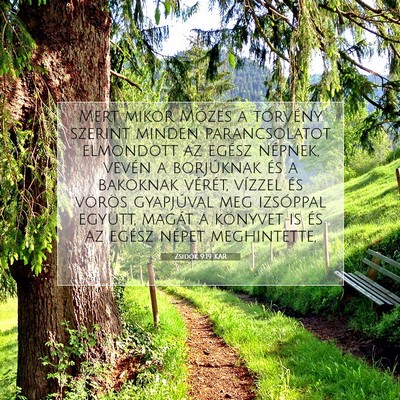 Mert mikor Mózes a törvény
szerint minden parancsolatot
elmondott az egész népnek,
vevén a borjúknak és a
bakoknak vérét, vízzel és
vörös gyapjúval meg izsóppal
együtt, magát a könyvet is és
az egész népet meghintette,
Zsidók 9:19 KAR